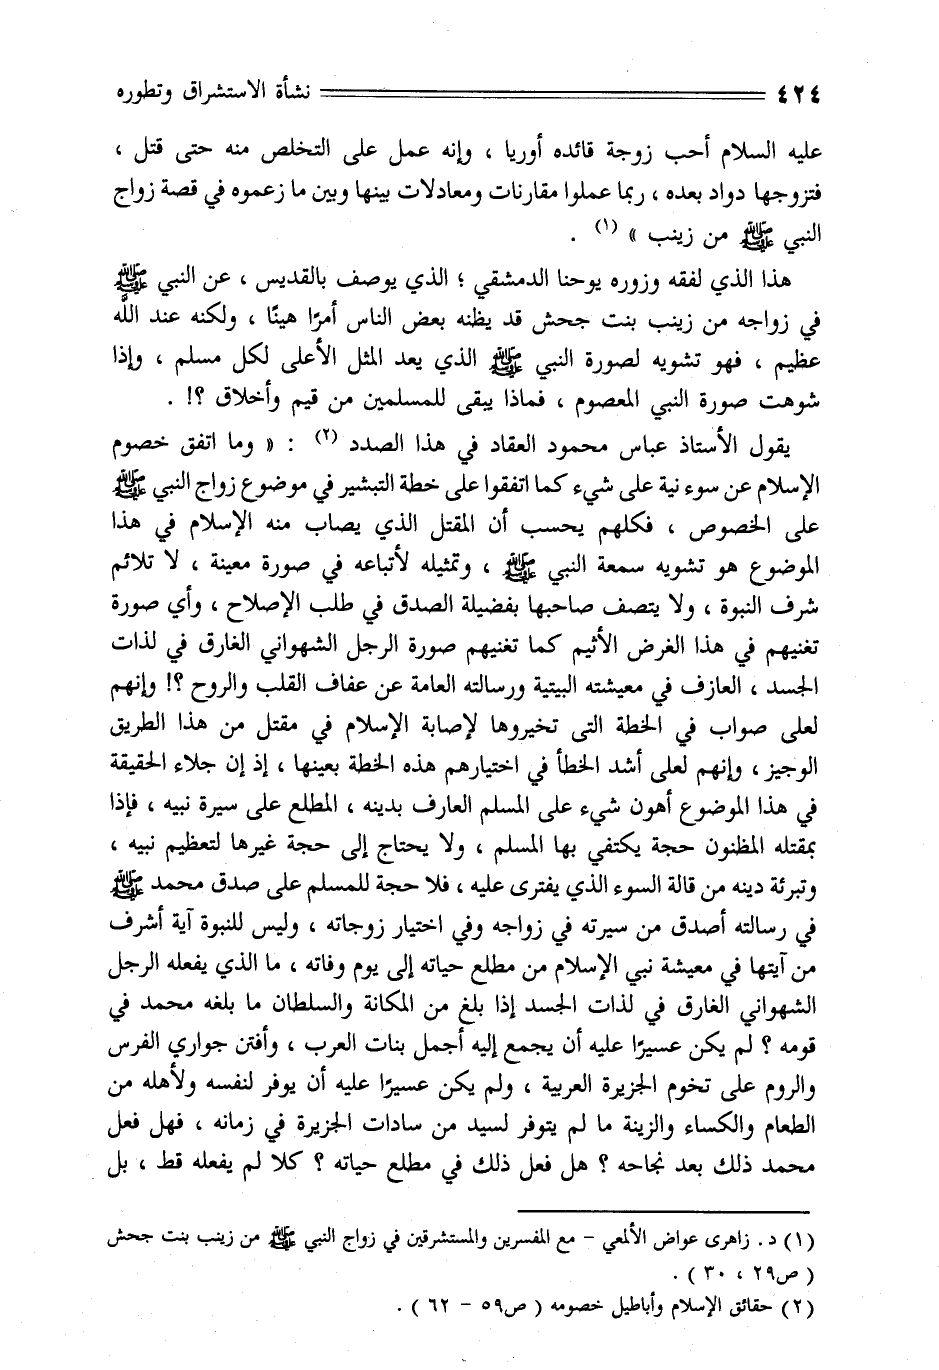 ٤٢٤ نشأة الاستشراق وتطوره
عليه السلام أحب زوجة قائده أوريا ، وإنه عمل على التخلص منه حتى قتل ،
فتزوجها دواد بعده ، ربما عملوا مقارنات ومعادلات بينها وبين ما زعموه في قصة زواج
النبي ﷺ من زينب » (١) .
هذا الذي لفقه وزوره يوحنا الدمشقي ؛ الذي يوصف بالقديس ، عن النبي ﷺ
في زواجه من زينب بنت جحش قد يظنه بعض الناس أمرًا هينًا ، ولكنه عند اللَّه
عظيم ، فهو تشويه لصورة النبي ﷺ الذي يعد المثل الأعلى لكل مسلم ، وإذا
شوهت صورة النبي المعصوم ، فماذا يبقى للمسلمين من قيم وأخلاق ؟! .
يقول الأستاذ عباس محمود العقاد في هذا الصدد (٢) : « وما اتفق خصوم
الإسلام عن سوء نية على شيء كما اتفقوا على خطة التبشير في موضوع زواج النبي ﷺ
على الخصوص ، فكلهم يحسب أن المقتل الذي يصاب منه الإسلام في هذا
الموضوع هو تشويه سمعة النبي ﷺ ، وتمثيله لأتباعه في صورة معينة ، لا تلائم
شرف النبوة ، ولا يتصف صاحبها بفضيلة الصدق في طلب الإصلاح ، وأي صورة
تغنيهم في هذا الغرض الأثيم كما تغنيهم صورة الرجل الشهواني الغارق في لذات
الجسد ، العازف في معيشته البيتية ورسالته العامة عن عفاف القلب والروح ؟! وإنهم
لعلى صواب في الخطة التى تخيروها لإصابة الإسلام في مقتل من هذا الطريق
الوجيز ، وإنهم لعلى أشد الخطأ في اختيارهم هذه الخطة بعينها ، إذ إن جلاء الحقيقة
في هذا الموضوع أهون شيء على المسلم العارف بدينه ، المطلع على سيرة نبيه ، فإذا
بمقتله المظنون حجة يكتفي بها المسلم ، ولا يحتاج إلى حجة غيرها لتعظيم نبيه ،
وتبرئة دينه من قالة السوء الذي يفترى عليه ، فلا حجة للمسلم على صدق محمد ﷺ
في رسالته أصدق من سيرته في زواجه وفي اختيار زوجاته ، وليس للنبوة آية أشرف
من آيتها في معيشة نبي الإسلام من مطلع حياته إلى يوم وفاته ، ما الذي يفعله الرجل
الشهواني الغارق في لذات الجسد إذا بلغ من المكانة والسلطان ما بلغه محمد في
قومه ؟ لم يكن عسيرًا عليه أن يجمع إليه أجمل بنات العرب ، وأفتن جواري الفرس
والروم على تخوم الجزيرة العربية ، ولم يكن عسيرًا عليه أن يوفر لنفسه ولأهله من
الطعام والكساء والزينة ما لم يتوفر لسيد من سادات الجزيرة في زمانه ، فهل فعل
محمد ذلك بعد نجاحه ؟ هل فعل ذلك في مطلع حياته ؟ كلا لم يفعله قط ، بل
(١) د. زاهرى عواض الألمعي – مع المفسرين والمستشرقين في زواج النبي ﷺ من زينب بنت جحش
( ص٢٩ ، ٣٠ ) .
(٢) حقائق الإسلام وأباطيل خصومه ( ص٥٩ – ٦٢ ) .